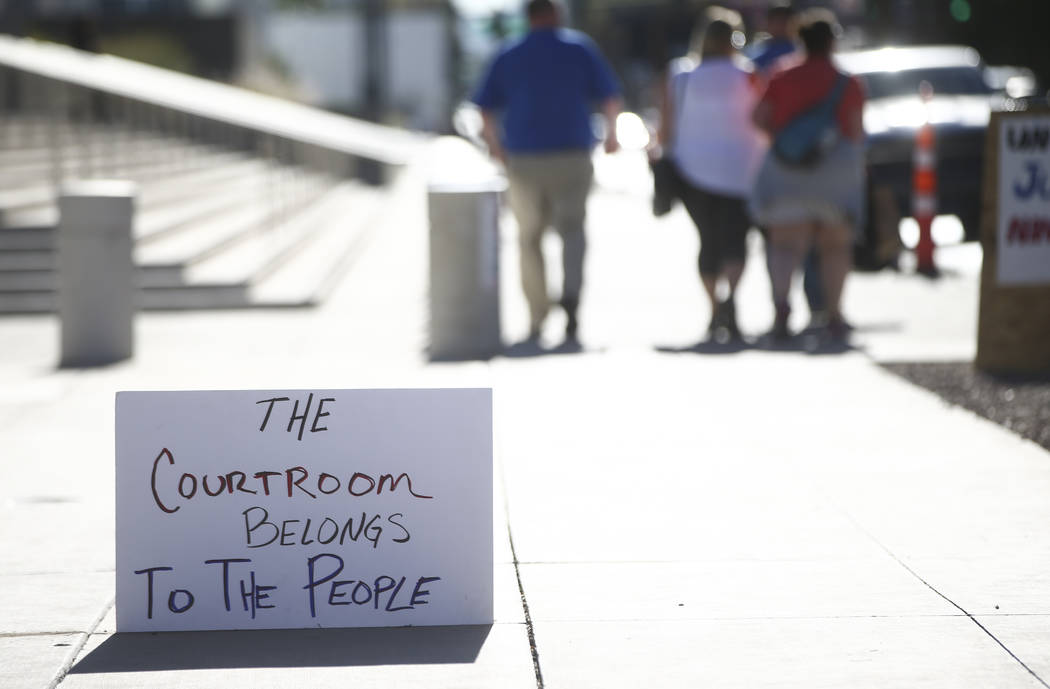 THE
COURTROOM
BELONGS
TO THE PEOPLE